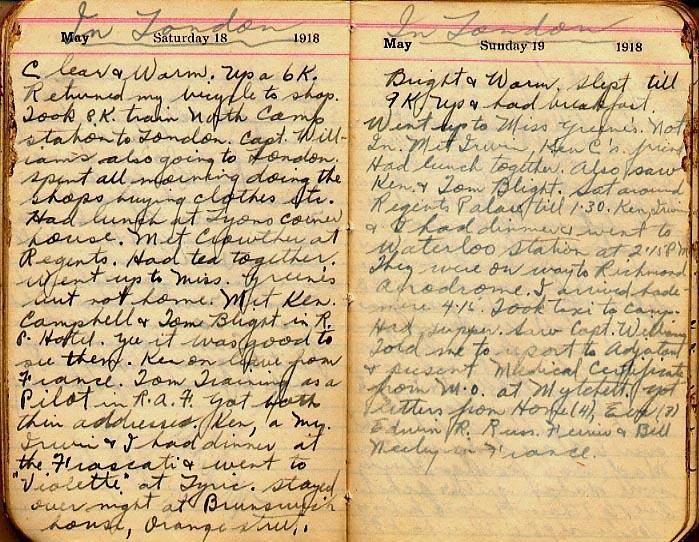 In London
May Saturday 18 1918
Clear & Warm. Up a 6K.
Returned my bicycle to shop.
Took 8K. train North Camp
station to London. Capt. Will-
iams also going to London.
spent all morning doing the
shops buying clothes etc.
Had lunch at Lyons corner
house. Met Crowther at
Regents. Had tea together.
Went up to Miss. Greene's
but not home. Met Ken.
Campbell & Tom Blight in R.
P. Hotel. ye it was good to
see them. Ken on leave from
France. Tom Training as a
Pilot in R.A.F. Got both
their addresses. Ken, a Mr.
Irwin & I had dinner at
the Frascati & went to
"Violette" at Lyric. stayed
over night at Brunswick
house, Orange street.
In London
May Sunday 19 1918
Bright & Warm. Slept till
9K. Up & had breakfast.
Went up to Miss Greene's. Not
In. Met Irwin, Ken C's. friend
Had lunch together. Also saw
Ken. & Tom Blight. Sat around
Regents Palace till 1.30. Ken, Irwin
& I had dinner & went to
Waterloo station at 2.15 P.M.
They were on way to Richmond
Aerodrome. I arrived
4.16. Took taxi to camp.
Had supper. Saw Capt. Williams
Told me to report to Adjutant
& present Medical Certificate
from M.O. at Mytchett. Got
letters from Home (4),
Edwin R. Russ. & Bill
in France.